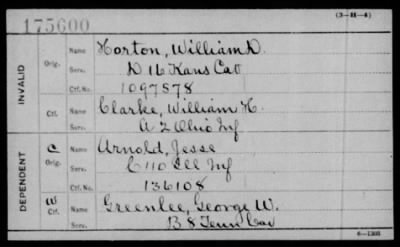 175600
(3—H—4)
INVALID
Orig. Name Horton, William D.
Serv. D 16 Kans Cav
Ctf. No. 1097578
Ctf. Name Clarke, William H.
Serv. A 2 Ohio Inf
DEPENDENT
C Orig. Name Arnold, Jesse
Serv. C 110 Ill Inf
Ctf. No. 136108
W Ctf. Name Greenlee, George W.
Serv. B 8 Tenn Cav
6—1308